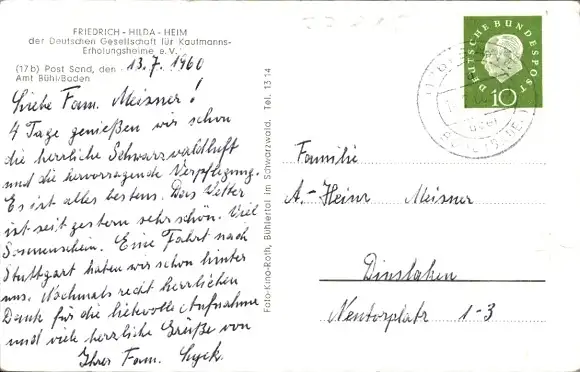 FRIEDRICH - HILDA - HEIM
der Deutschen Gesellschaft für Kaufmanns-
Erholungsheime e.V.
(17b) Post Sand, den 13.7.1960
Amt Bühl/Baden
Liebe Fam. Meisner!
4 Tage genießen wir schon
die herrliche Schwarzwaldluft
und die hervorragende Verpflegung.
Es ist alles bestens. Das Wetter
ist seit gestern sehr schön. Viel
Sonnenschein. Eine Fahrt nach
Stuttgart haben wir schon hinter
uns. Nochmals recht herzlichen
Dank für die liebevolle Aufnahme
und viele herzliche Grüße von
Ihrer Fam.
Foto-Kino-Roth, Bühlertal im Schwarzwald, Tel. 1314
DEUTSCHE BUNDESPOST
10
Familie
A.-Heinz Meisner
Dinslaken
Neutorplatz 1-3